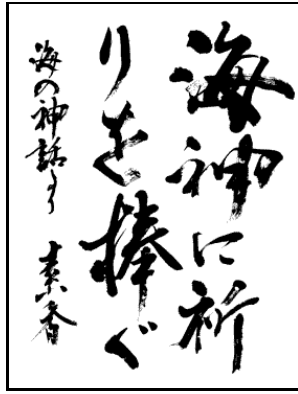 海神に祈
りを捧ぐ
海の神話より 素香